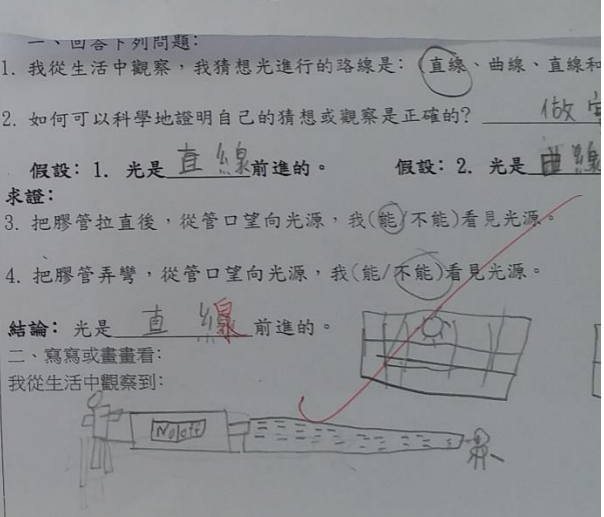 一、回答下列問題：
1. 我從生活中觀察，我猜想光進行的路線是：（直線、曲線、直線和
2. 如何可以科學地證明自己的猜想或觀察是正確的？ 做
假設：1. 光是直線前進的。 假設：2. 光是曲線
求證：
3. 把膠管拉直後，從管口望向光源，我(能/不能)看見光源。
4. 把膠管弄彎，從管口望向光源，我(能/不能)看見光源。
結論：光是直線前進的。
二、寫寫或畫畫看：
我從生活中觀察到：